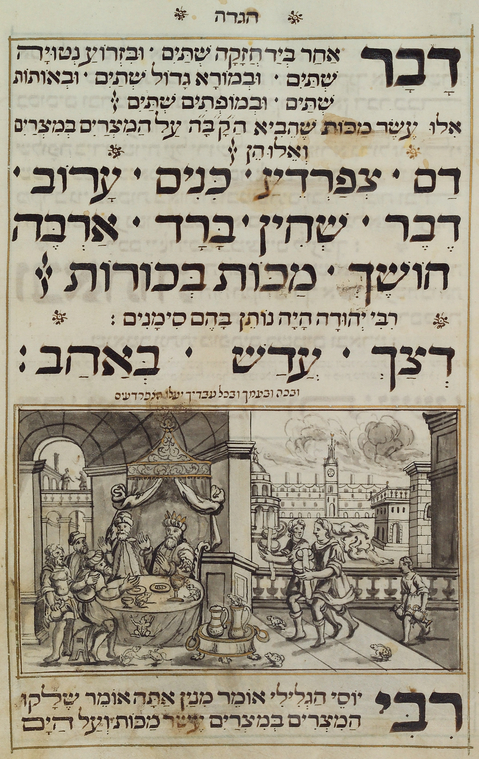 הגדה
דָבָר אחר בְּיָד חֲזָקָה שְׁתַּיִם · וּבִזְרוֹעַ נְטוּיָה
שְׁתַּיִם · וּבְמוֹרָא גָּדוֹל שְׁתַּיִם · וּבְאוֹתוֹת
שְׁתַּיִם · וּבְמוֹפְתִים שְׁתַּיִם
אלו עֶשֶׂר מכּוֹת שֶׁהֵבִיא הַקָּבָּ״ה עַל הַמִּצְרִים בְּמִצְרַיִם
וְאֵלוּ הֵן
דָם · צפַרְדֵעַ · כִּנִים · עָרוֹב ·
דֶבֶר · שְׁחִין · בָּרָד · אַרְבֶּה
חוֹשֶׁךְ · מַכּוֹת בְּכוֹרוֹת
רַבִּי יְהוּדָה הָיָה נוֹתֵן בָּהֶם סִימָנִים :
דְצַךְ · עֲדַשׁ · בְּאַהַב :
ובכה ובעמך ובכל עבדיך יעלו הצפרדעים
רִבִּי יוֹסֵי הַגְּלִילִי אוֹמֵר מִנַּיִן אַתָּה אוֹמֵר שֶׁלָּקוּ
הַמִּצְרִים בְּמִצְרַיִם עֶשֶׂר מַכּוֹת וְעַל הַיָּם